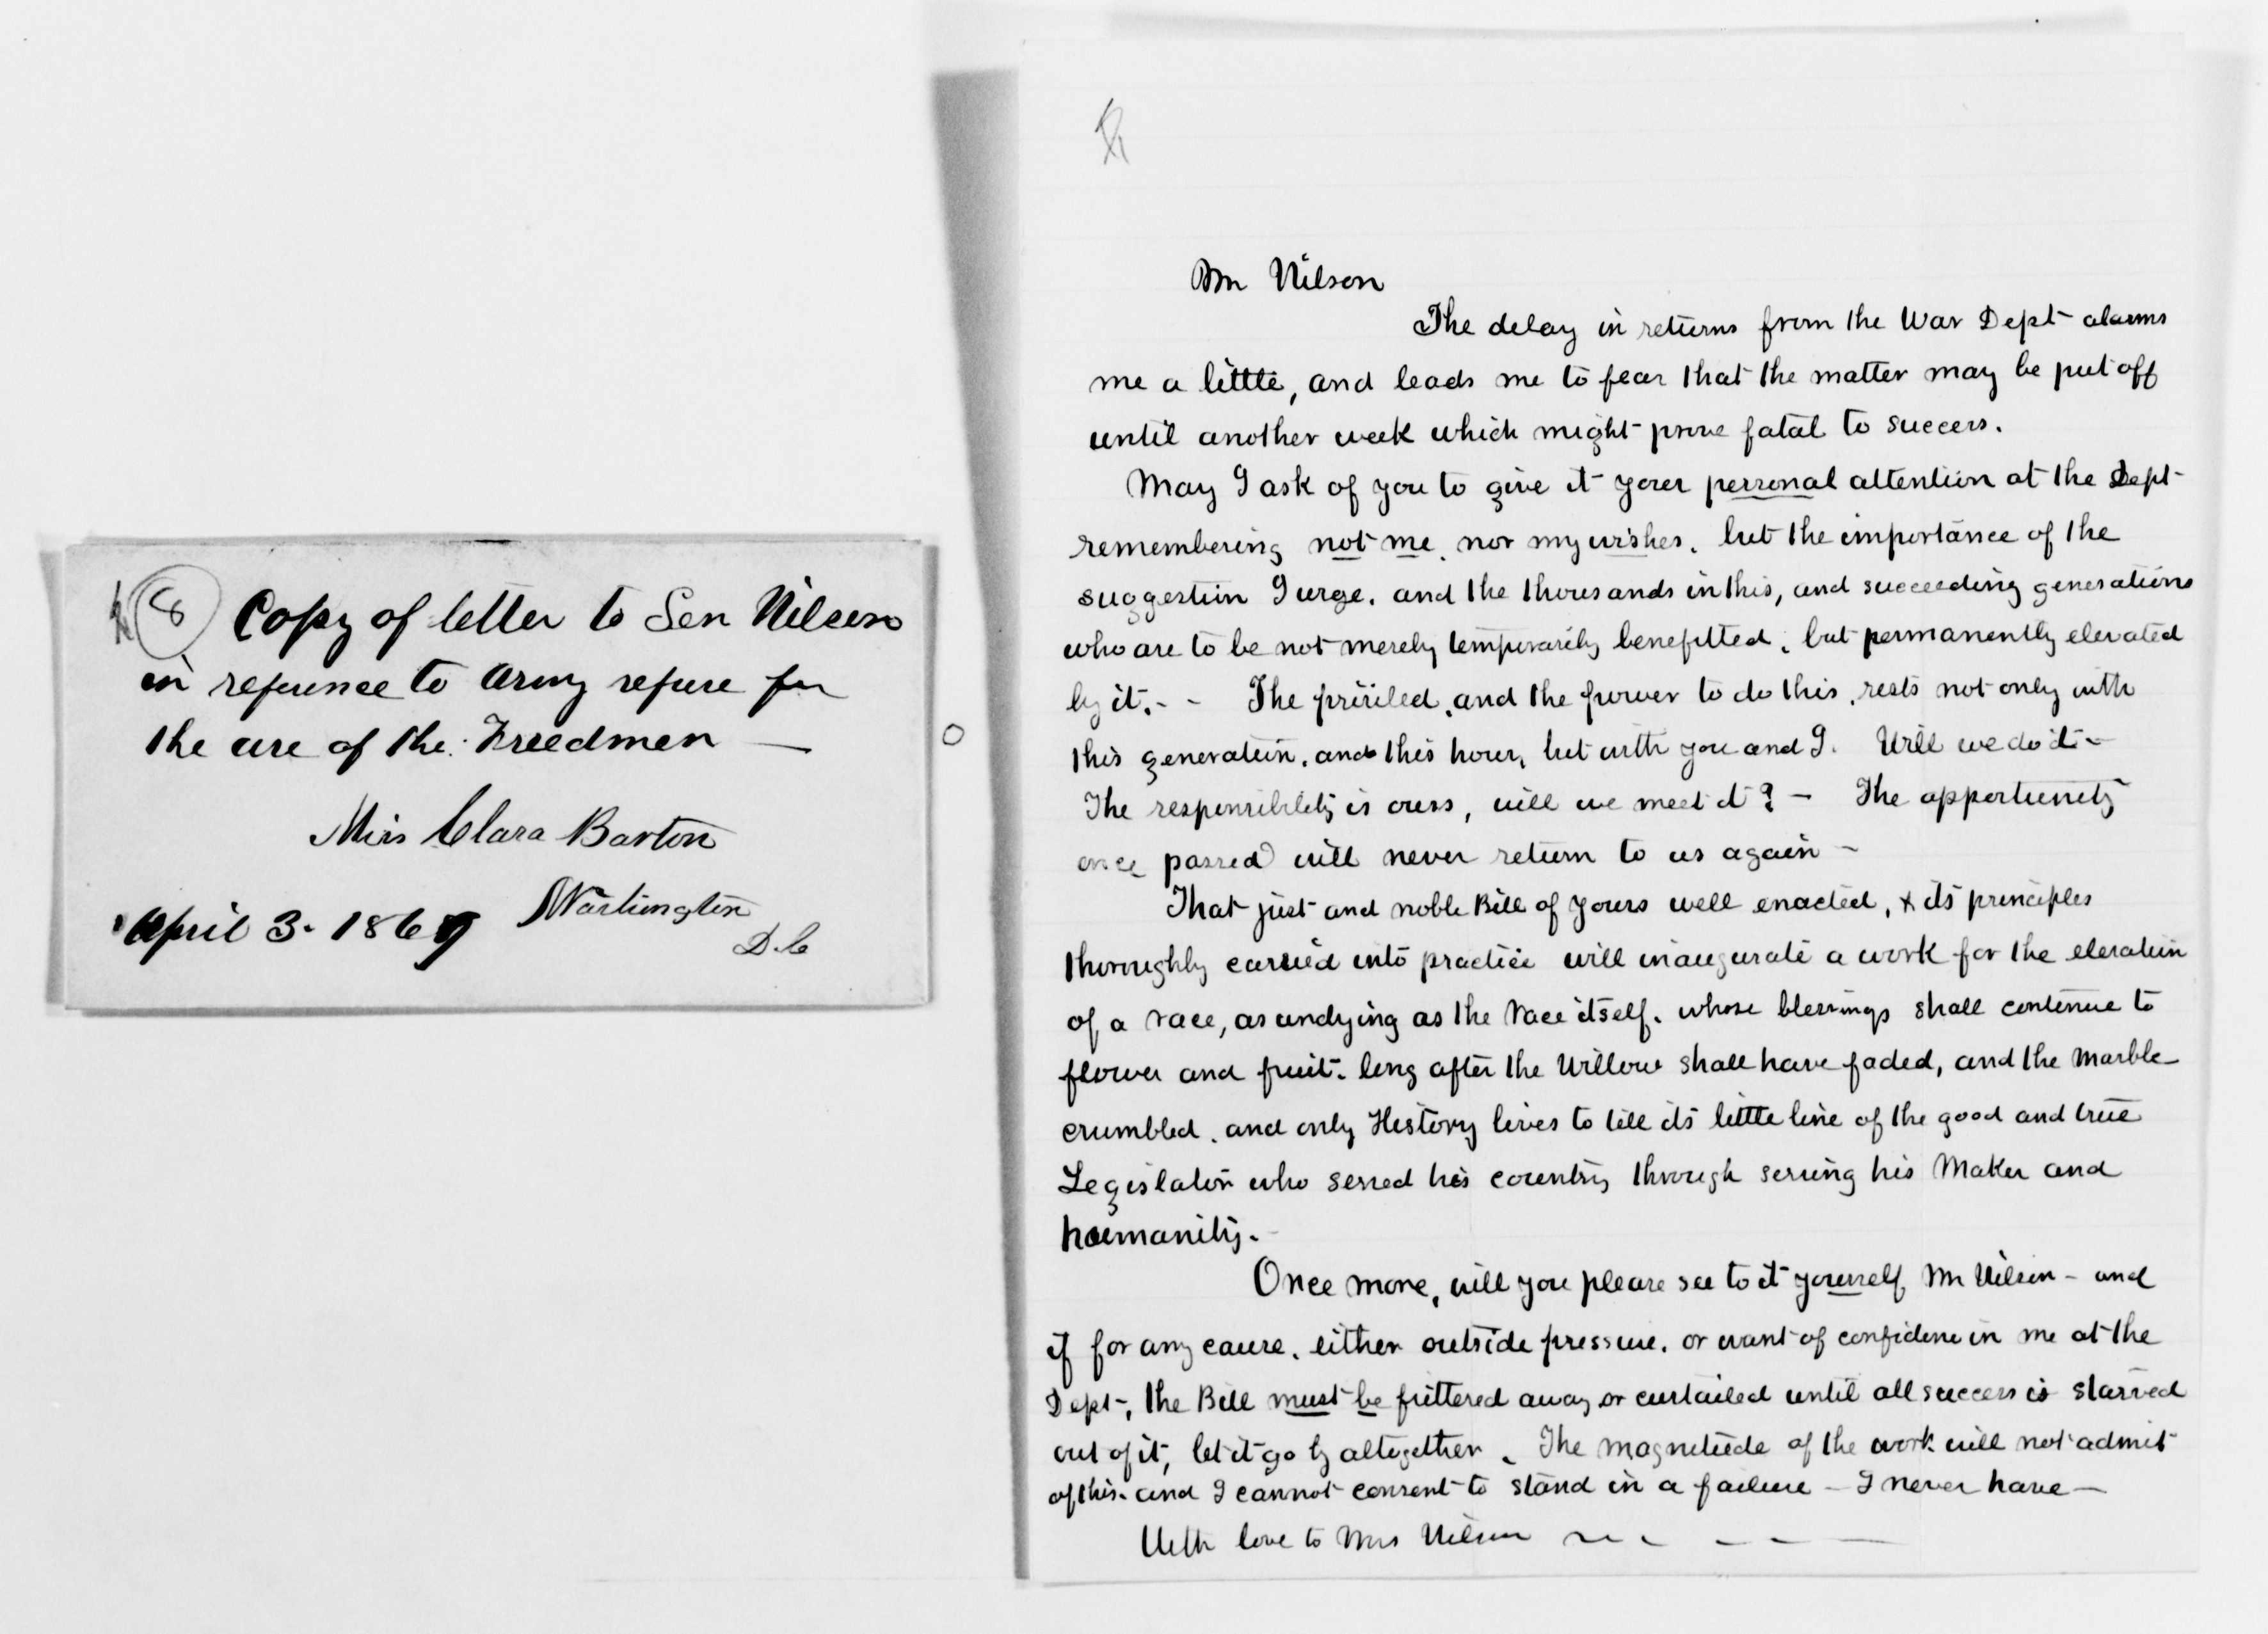 8 Copy of letter to Sen Wilson
in reference to Army refuse for
the use of the Freedmen —
Miss Clara Barton
Washington
D.C
April 3. 1869
Mr Wilson
The delay in returns from the War Dept alarms
me a little, and leads me to fear that the matter may be put off
until another week which might prove fatal to success.
May I ask of you to give it your personal attention at the Dept
remembering not me, nor my wishes, but the importance of the
suggestion I urge, and the thousands in this, and succeeding generations
who are to be not merely temporarily benefitted, but permanently elevated
by it. - - The , and the power to do this, rests not only with
this generation, and this hour, but with you and I. Will we do it -
The responsibility is ours, will we meet it? - The opportunity
once passed will never return to us again -
That just and noble Bill of yours well enacted, & its principles
thoroughly carried into practice will inaugurate a work for the elevation
of a race, as undying as the race itself, whose blessings shall continue to
flower and fruit, long after the Willow shall have faded, and the Marble
crumbled, and only History lives to tell its little line of the good and true
Legislator who served his country through serving his Maker and
humanity. -
Once more, will you please see to it yourself Mr Wilson - and
if for any cause, either outside pressure, or want of confidence in me at the
Dept-, the Bill must be frittered away or curtailed until all success is starved
out of it, let it go by altogether. The magnitude of the work will not admit
of this. and I cannot consent to stand in a failure - I never have -
With love to Mrs Wilson